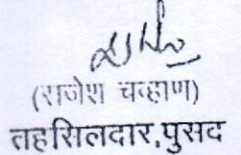 (राजेश चव्हाण)
तहसिलदार,पुसद